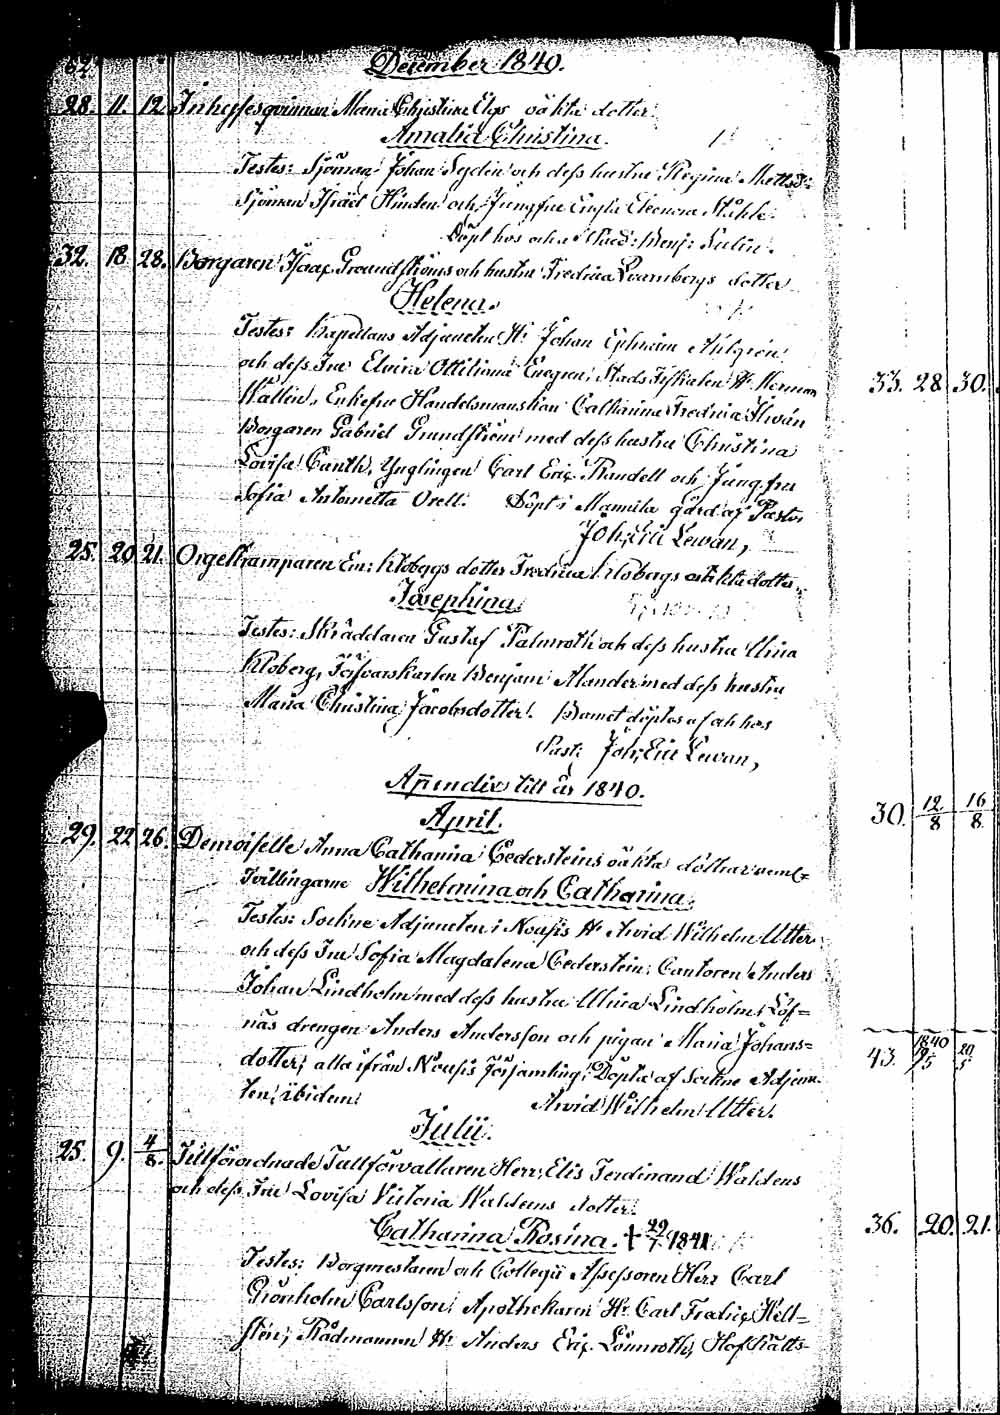 December 1840.
28. 11. 12. Inhysesqvinnan Maria Christina Elgs oäkta dotter
Amalia Christina.
Testes: Sjöman Johan Sedin och dess hustru Regina Mattsd:r
Sjöman Israël Hinden och Jungfru Engla Eleonora Ståhle.
Döpt hos och af Past: Benj: Lulin.
32. 18. 28. Borgaren Isaac Grundströms och hustru Fredrica Qvarnbergs dotter
Helena.
Testes: Kapellans Adjuncten Hr Johan Ephraim Ahlgrén
och dess Fru Elvira Ottiliana Enegren, Stads Fiskalen Hr Herman
Wallin, Enkefru Handelsmanskan Catharina Fredrica
Borgaren Gabriel Grundström med dess hustru Christina
Lovisa Canth, Ynglingen Carl Eric Randell och Jungfru
Sofia Antonietta Orell. Döpt i Mamila gård af Pastor
Joh: Eric Lewan,
25. 20. 21. Orgeltramparen Em: Klobergs dotter Fredrica Klobergs oäkta dotter
Josephina
Testes: Skräddaren Gustaf Palmroth och dess hustru Ulrica
Kloberg, Försvarskarlen Benjam: Alander med dess hustru
Maria Christina Jacobsdotter. Barnet döptes af och hos
Past: Joh: Eric Lewan,
Apendix till år 1840.
April.
29. 22. 26. Demoiselle Anna Catharina Cedersteins oäkta döttrar neml=
Tvillingarne Wilhelmina och Catharina.
Testes: Sockne Adjuncten i Nousis Hr Arvid Wilhelm Utter
och dess Fru Sofia Magdalena Cederstein, Cantoren Anders
Johan Lindholm med dess hustru Ulrica Lindholm, Löf=
näs drengen Anders Andersson och pigan Maria Johans=
dotter, alla ifrån Nousis Församling; Döpta af Sockne Adjunc=
ten, ibidem Arvid Wilhelm Utter.
Julii.
25. 9. 4/8. Tillförordnade Tullförvaltaren Herr Elis Ferdinand Waldens
och dess Fru Lovisa Victoria Waldens dotter
Catharina Rosina. † 29/7 1841
Testes: Borgmestaren och Collegii Assessoren Herr Carl
Grönholm Carlsson, Apothekaren Hr Carl Fredric Hell=
stén, Rådmannen Hr Anders Eric Lönnroth, HofRätts=
33. 28 30.
30. 12/8 16/8
43. 1840 9/5
36. 20. 21.